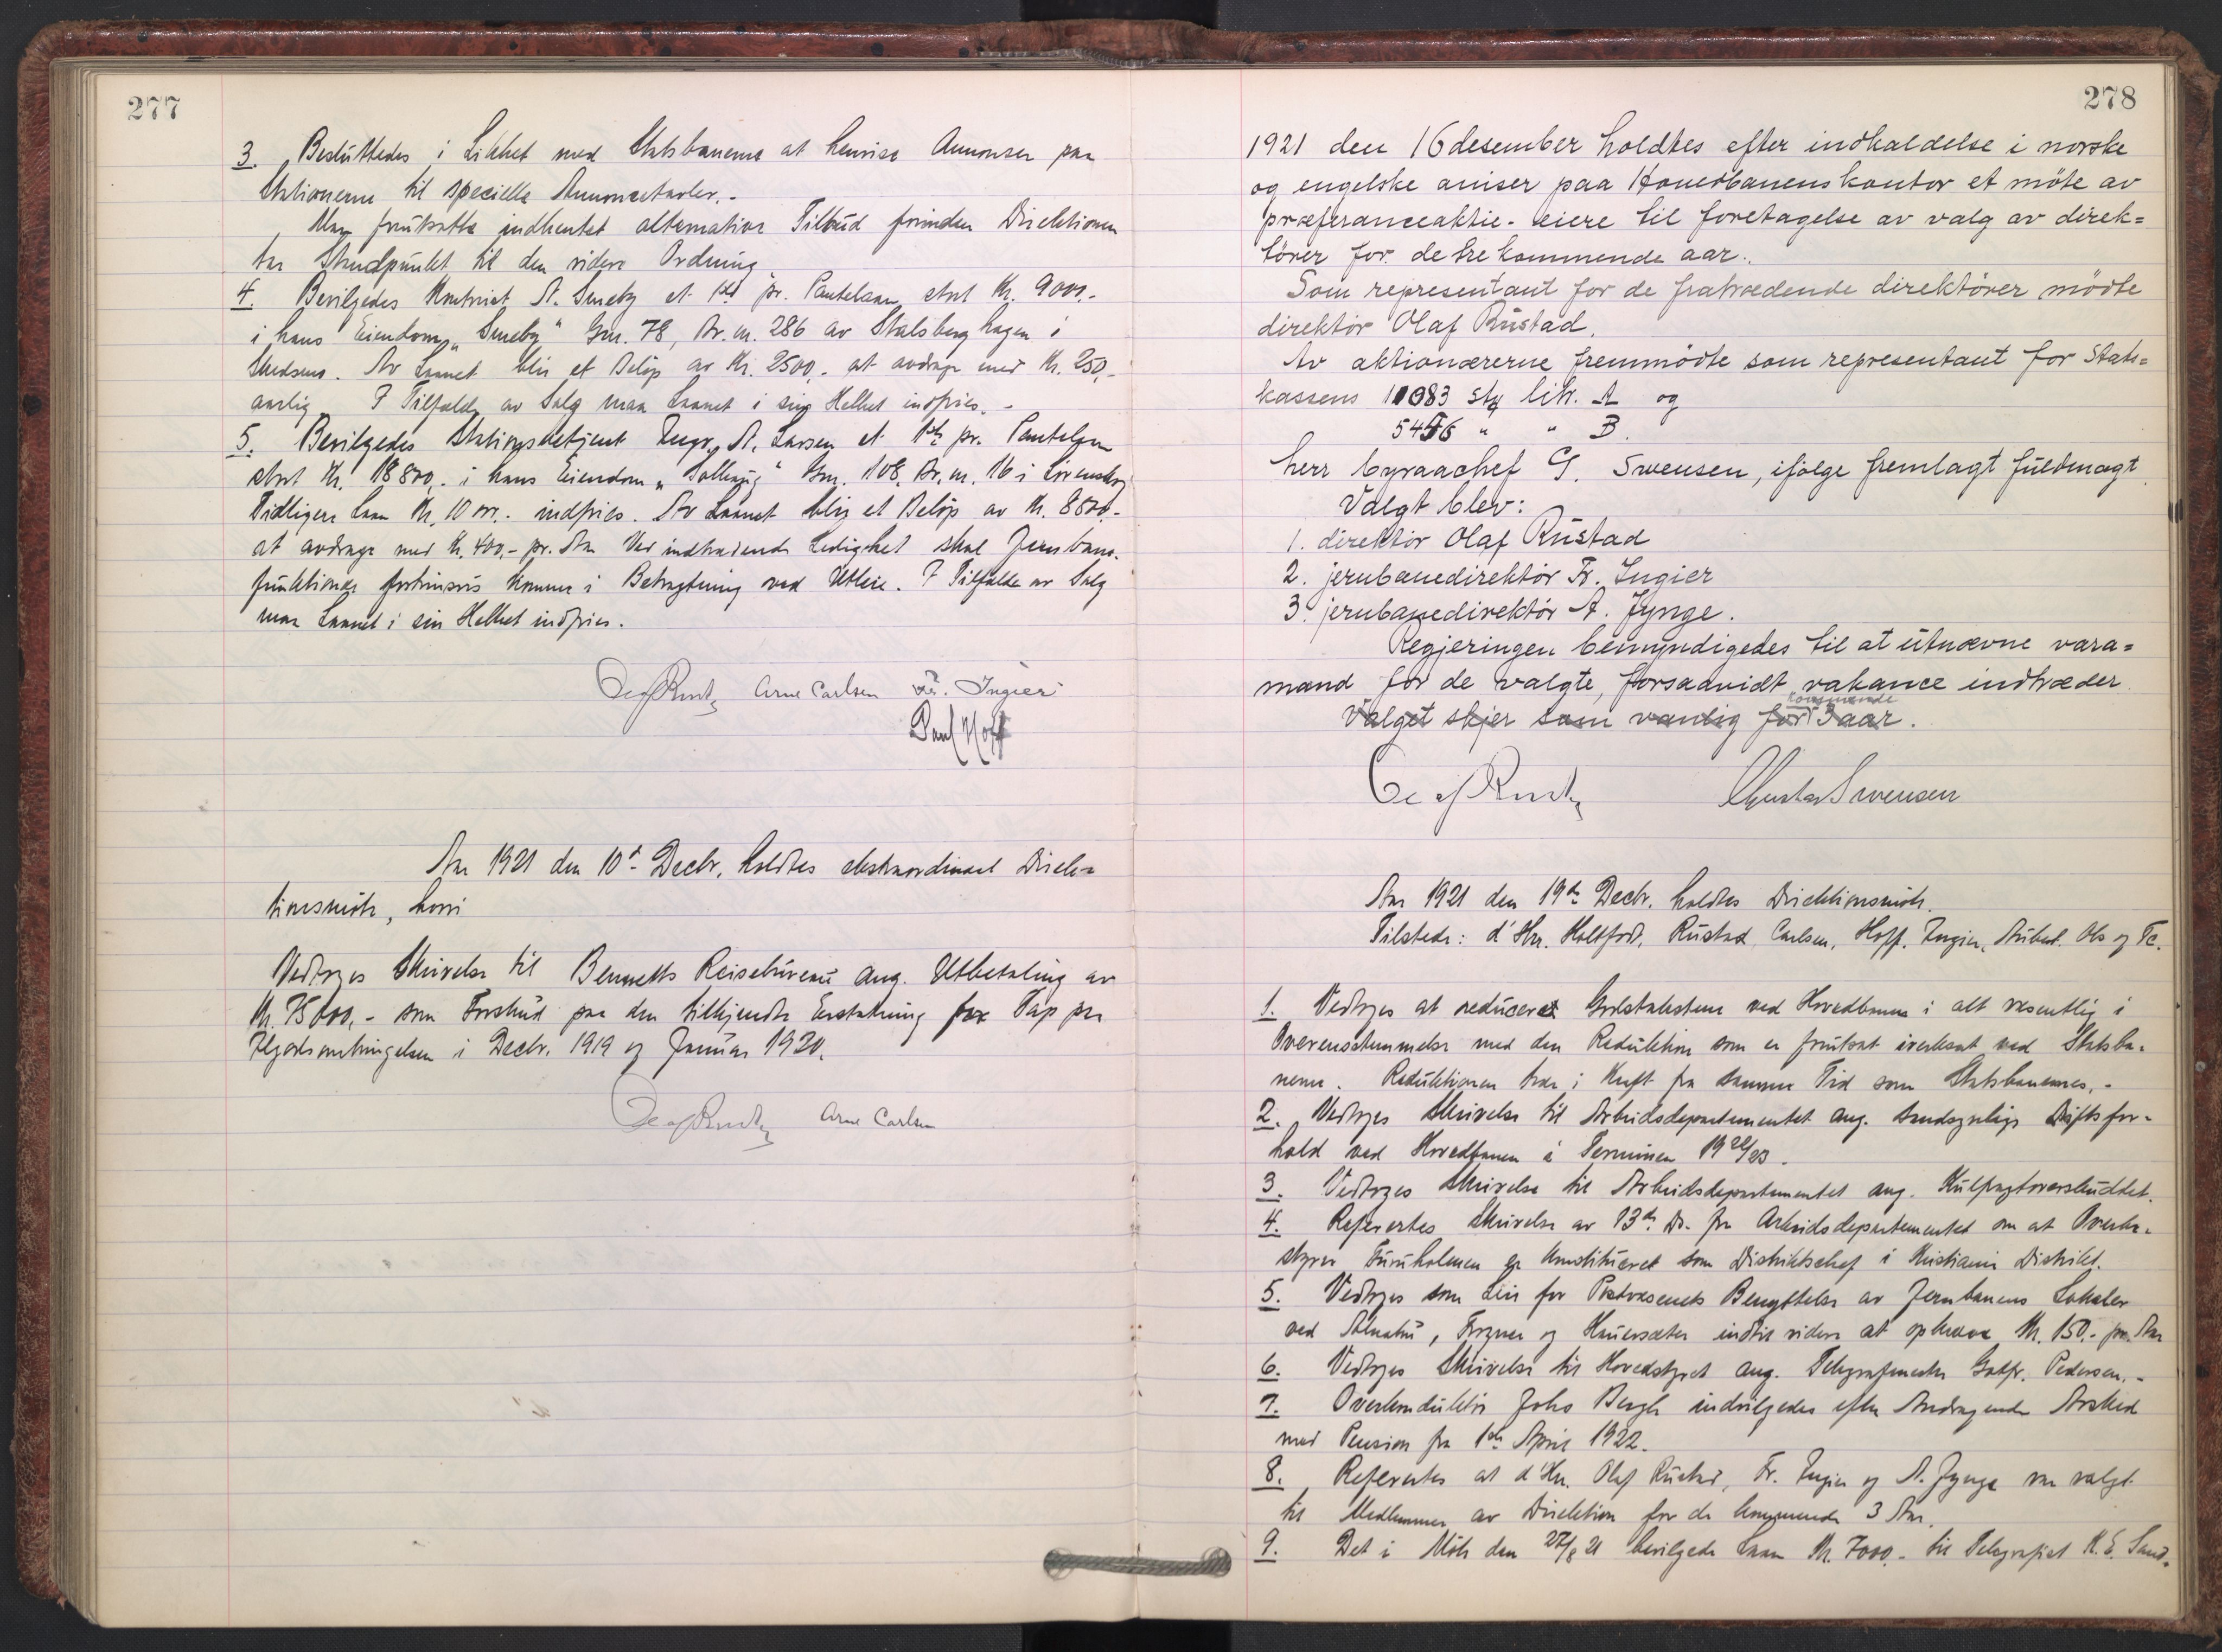 277
3. Besluttedes i Likhet med Statsbanerne at henvise Annonser paa
Stationerne til specielle Annoncetavler.-
Man fortsatte indhentet alternative Tilbud forinden Direktionen
tar Standpunkt til den videre Ordning
4. Bevilgedes Kontorist A. Smeby et 1ste pr. Pantelaan stort Kr. 9000,-
i hans Eiendom „Smeby" Gnr. 78, Br. nr. 286 av Stalsberghagen i
Skedsmo. Av Laanet blir et Beløp av Kr. 2500,- at avdrage med Kr. 250,-
aarlig. I Tilfælde av Salg maa Laanet i sin Helhet indfries.-
5. Bevilgedes Stationsbetjent Ingv. A. Larsen et 1ste pr. Pantelaan
stort Kr. 18800,- i hans Eiendom „Solhaug" Gnr. 108, Br. nr. 16 i Lørenskog
Tidligere Laan Kr. 10 000,- indfries. Av Laanet blir et Beløp av Kr. 8800,-
at avdrage med Kr. 400,- pr. Aar Ved indtrædende Ledighet skal Jernbane-
funktionær fortrinsvis komme i Betragtning ved Utleie. I Tilfælde av Salg
maa Laanet i sin Helhet indfries.
Olaf Rustad Arne Carlsen Fr. Ingier
Paul Hoff
Aar 1921 den 10de Decbr. holdtes ekstraordinært Direk=
tionsmøte, hvori
Vedtoges Skrivelse til Bennetts Reisebureau ang. Utbetaling av
Kr. 75000,- som Forskud paa den tilkjendte Erstatning for Tap paa
i Decbr. 1919 og Januar 1920.
Olaf Rustad Arne Carlsen
278
1921 den 16 desember holdtes efter indkaldelse i norske
og engelske aviser paa Hovedbanens kontor et møte av
præferanceaktie-eiere til foretagelse av valg av direk=
tører for de tre kommende aar.
Som representant for de fratrædende direktører mødte
direktør Olaf Rustad.
Av aktionærerne fremmødte som representant for Stats=
kassens 11083 stk litr. A og
5456 " " B.
herr byraachef G. Swensen, ifølge fremlagt fuldmagt.
Valgt blev:
1. direktør Olaf Rustad
2. jernbanedirektør Fr. Ingier
3. jernbanedirektør A. Fynge.
Regjeringen bemyndigedes til at utnævne vara=
mand for de valgte, forsaavidt vakance indtræder.
kommende
Valget skjer som vanlig for 3 aar.
Olaf Rustad Gustav Swensen
Aar 1921 den 19de Decbr. holdtes Direktionsmøte.
Tilstede: d'Hrr. Holtfodt, Rustad, Carlsen, Hoff, Ingier,
1. Vedtoges at reducere Godstakstene ved Hovedbanen i alt væsentlig i
Overensstemmelse med den Reduktion som er forutsat iverksat ved Statsba-
nerne. Reduktionen trær i Kraft fra samme Tid som Statsbanernes.-
2. Vedtoges Skrivelse til Arbeidsdepartementet ang. sandsynlige Driftsfor-
hold ved Hovedbanen i Terminen 1922/23.
3. Vedtoges Skrivelse til Arbeidsdepartementet ang. Kulfragtoverskuddet.
4. Refereertes Skrivelse av 13de ds. fra Arbeidsdepartementet om at Overbe-
styrer Furuholmen er konstitueret som Distriktschef i Kristiania Distrikt.
5. Vedtoges som Leie for Postvæsenets Benyttelse av Jernbanens Lokaler
ved Alnabru, Frogner og Hauersæter indtil videre at opkræve Kr. 150,- pr. Aar
6. Vedtoges Skrivelse til Hovedstyret ang. Telegrafmester Gotfr. Pedersen.-
7. Overkonduktør Johs Bergh indvilgedes efter Andragende Avsked
med Pension fra 1ste April 1922.
8. Refereertes at d'Hrr. Olaf Rustad, Fr. Ingier og A. Fynge var valgt
til Medlemmer av Direktion for de kommende 3 Aar.
9. Det i Møte den 27/8 21 bevilgede Laan Kr. 7000,- til Telegrafist K. E. Sand-